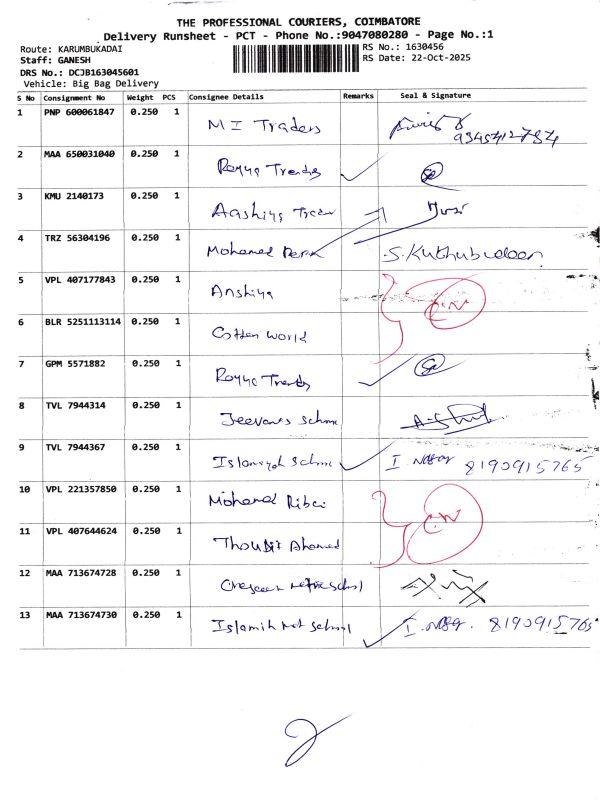 THE PROFESSIONAL COURIERS, COIMBATORE
Delivery Runsheet - PCT - Phone No.:9047080280 - Page No.:1
Route: KARUMBUKADAI RS No.: 1630456
Staff: GANESH RS Date: 22-Oct-2025
DRS No.: DCJB163045601
Vehicle: Big Bag Delivery
S No Consignment No Weight PCS Consignee Details Remarks Seal & Signature
1 PNP 600061847 0.250 1 M I Traders
2 MAA 650031040 0.250 1 Royya Trends
3 KMU 2140173 0.250 1 Aashiya
4 TRZ 56304196 0.250 1 Mohamed S. Kuthubudeen
5 VPL 407177843 0.250 1 Anshiya
6 BLR 5251113114 0.250 1 Cotton World
7 GPM 5571882 0.250 1 Royya Trends
8 TVL 7944314 0.250 1 Jeevan's
9 TVL 7944367 0.250 1 I. 8190915765
10 VPL 221357850 0.250 1 Mohamed
11 VPL 407644624 0.250 1 Ahamed
12 MAA 713674728 0.250 1 Crescent
13 MAA 713674730 0.250 1 Islamih Mat School I. 8190915765